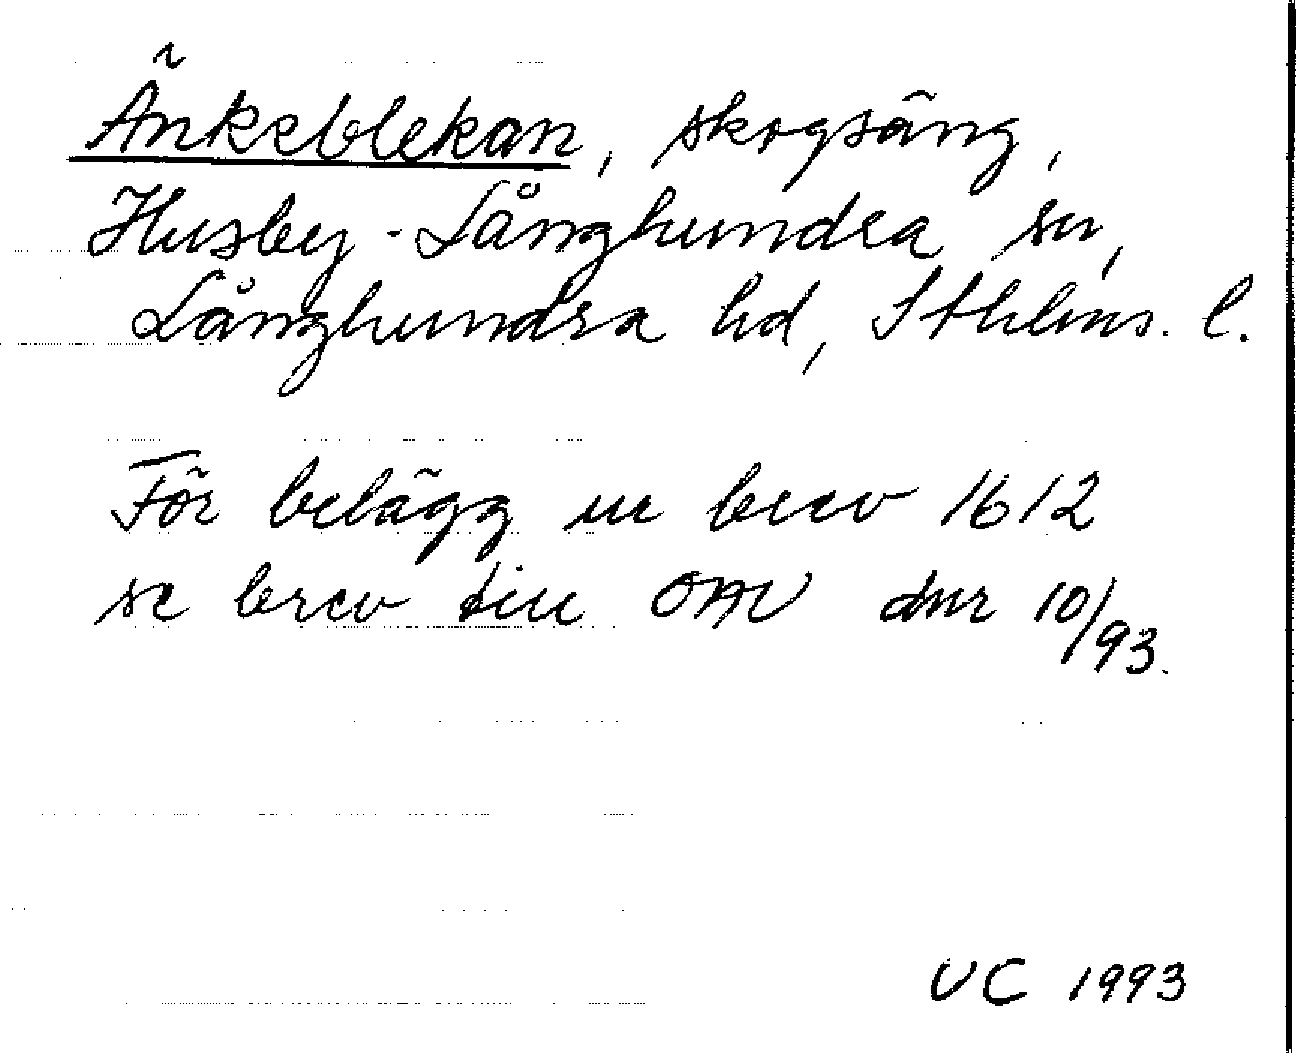 Änkeblekan, skogsäng,
Husby-Långhundra sn,
Långhundra hd, Sthlms. l.
För belägg ur brev 1612
se brev till OAU dnr 10/93.
UC 1993